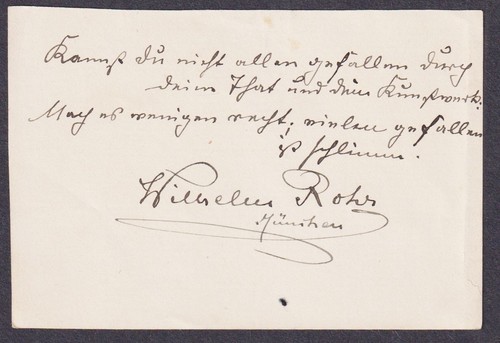 Kannst du nicht allen gefallen durch
deine That und dein Kunstwerk:
Mach es wenigen recht; vielen gefallen
ist schlimm.
Wilhelm Rohr
München